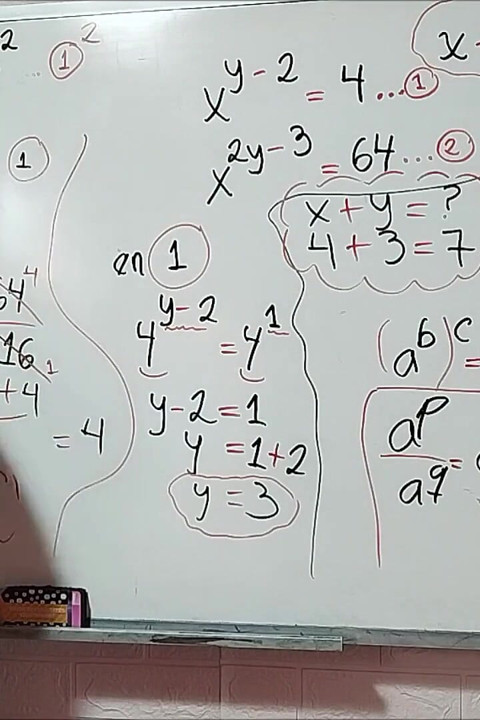 2
... ① ²
x^{y-2} = 4 ... ①
x^{2y-3} = 64 ... ②
x + y = ?
4 + 3 = 7
①
64 4
16 1
+4
= 4
en ①
4^{y-2} = 4^1
y-2 = 1
y = 1+2
y = 3
x-
(a^b)^c =
a^p
a^q =